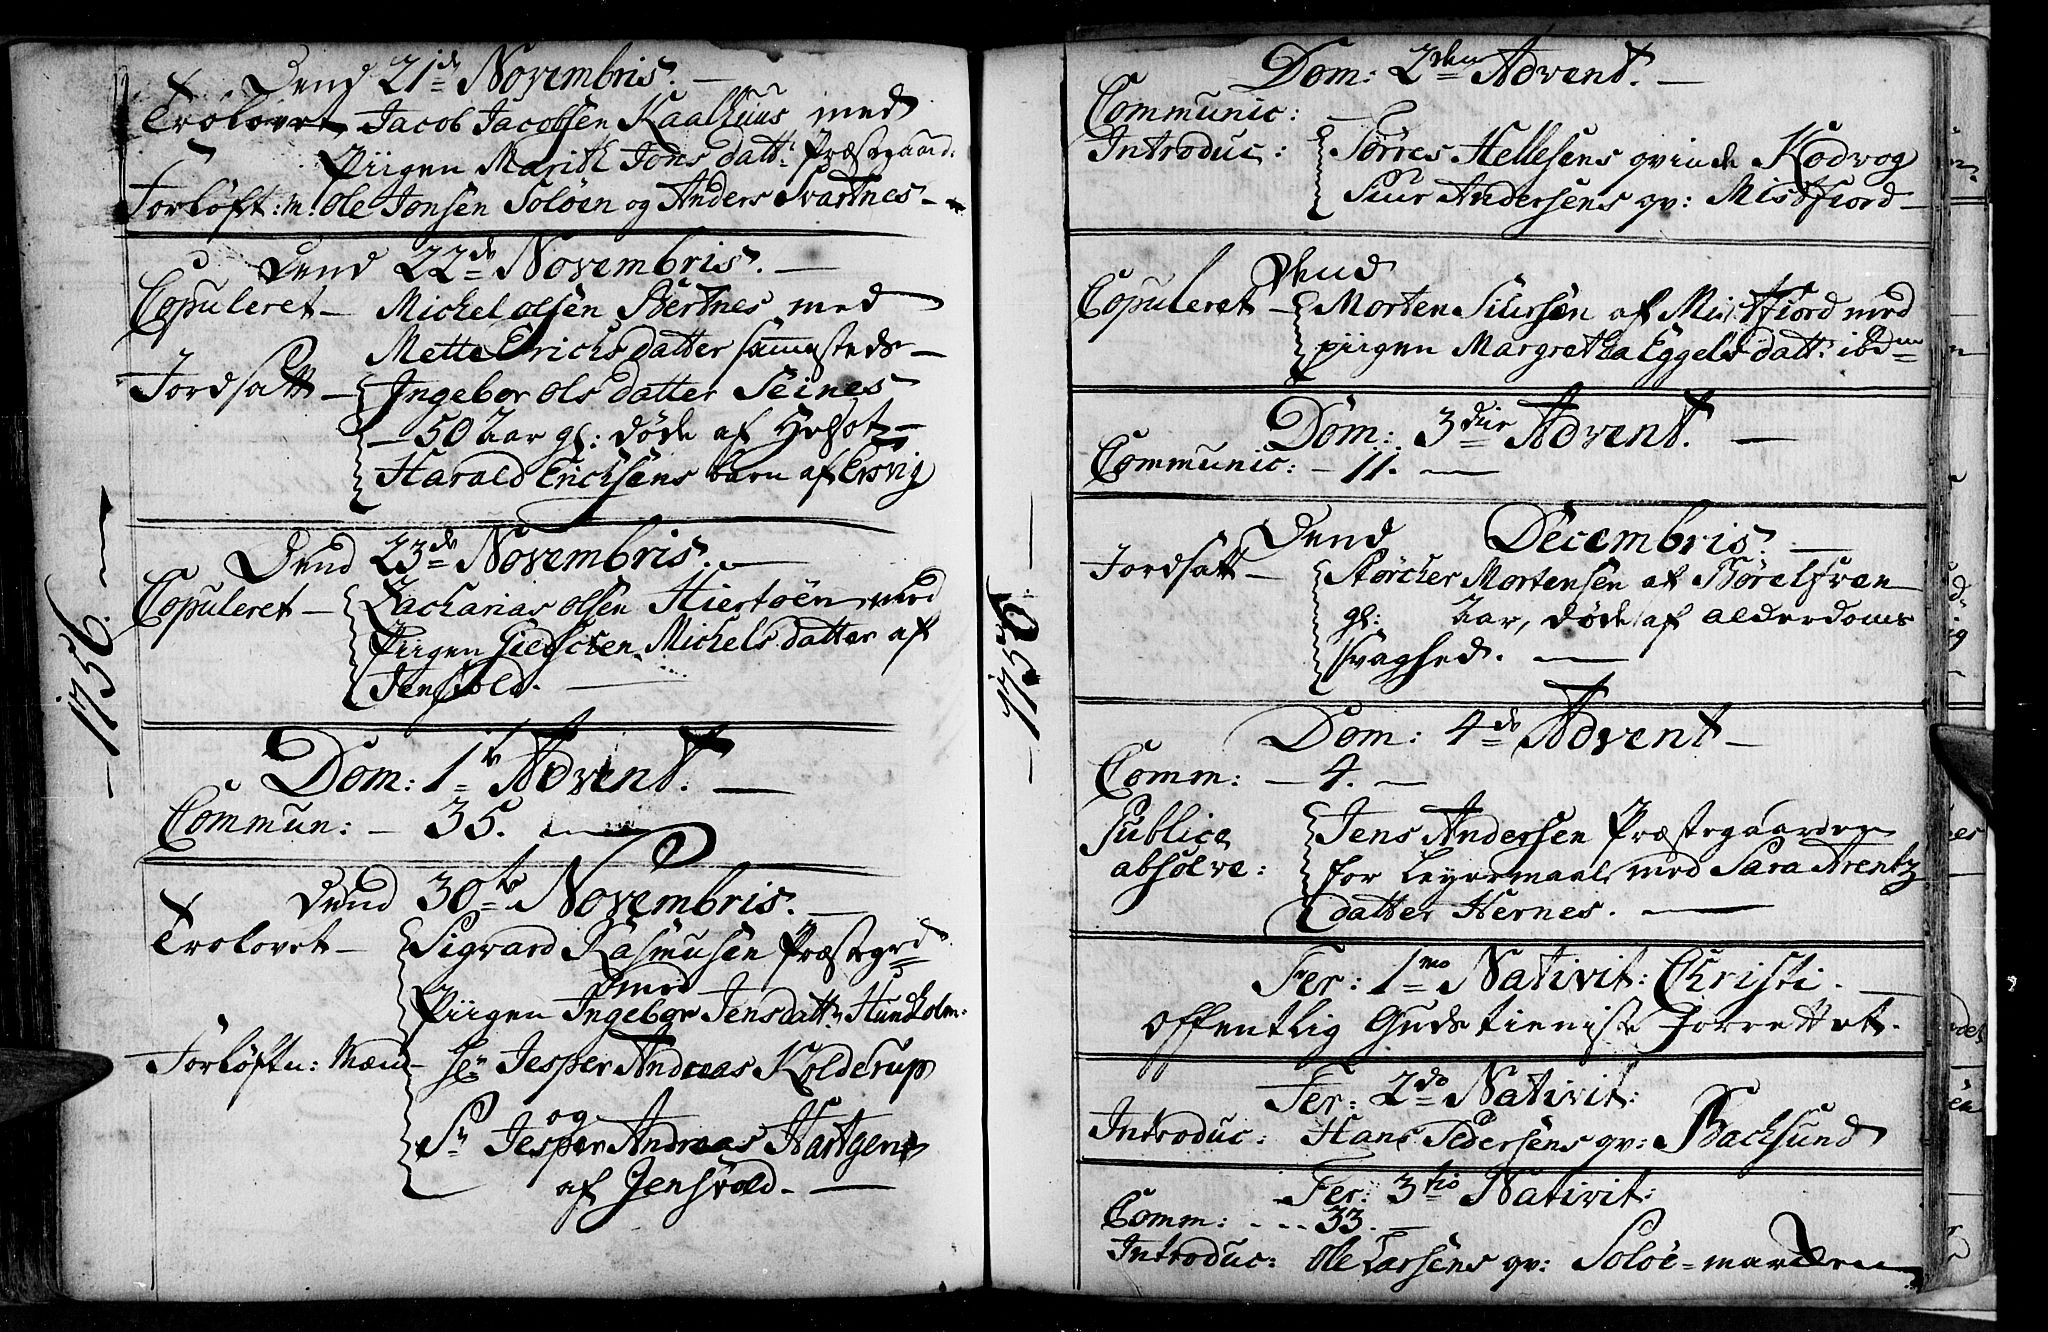 1756.
Dend 21de Novembris.
Trolovet Jacob Jacobsen Kaalhuus med
Piigen Marith Jons datt: Præstegaard.
Forløft: m: Ole Jonsen Soløen og Anders Svartnes
Dend 22de Novembris.
Copuleret Michel Olsen Bertnes med
Mette Erichs datter sammesteds
Jordsatt Ingebor Ols datter Seines
50 Aar gl: døde af
Harald Erichsens barn af Ersvig
Dend 23de Novembris.
Copuleret Zacharias Olsen Hiertøen med
Piigen Giedschen Michels datter af
Jensvold.
Dom: 1te Advent.
Commun: 35.
Dend 30te Novembris.
Trolovet Sigvard Rasmusen Præstegrd
med
Piigen Ingebor Jens datt: Hundholm:
Forløftn: Mæn Sr Jesper Andreas Kolderup
og
Sr Jesper Andreas Hartgen
af Jensvold.
1756
Dom: 2den Advent.
Communic:
Introduc: Torres Hellesens qvinde Kodvog
Siur Andersens qv: Mistfiord
Dend
Copuleret Morten Siursen af Mistfiord med
piigen Margretha Eggels datt: ibdm
Dom: 3die Advent.
Communic: 11.
Dend Decembris.
Jordsatt Storcher Mortensen af
gl: Aar, døde af alderdoms
svaghed.
Dom: 4de Advent
Comm: 4.
Publice Jens Andersen Præstegaarden
absolve: for Leyermaal med Sara Arentz
datter Hernes.
Fer: 1mo Nativit: Christi.
Offentlig Gudstieniste forrettet.
Fer: 2do Nativit:
Introduc: Hans Pedersens qv: Bachsund
Fer: 3tio Nativit:
Comm: 33.
Introduc: Ole Larsens qv: Soløe-marchen